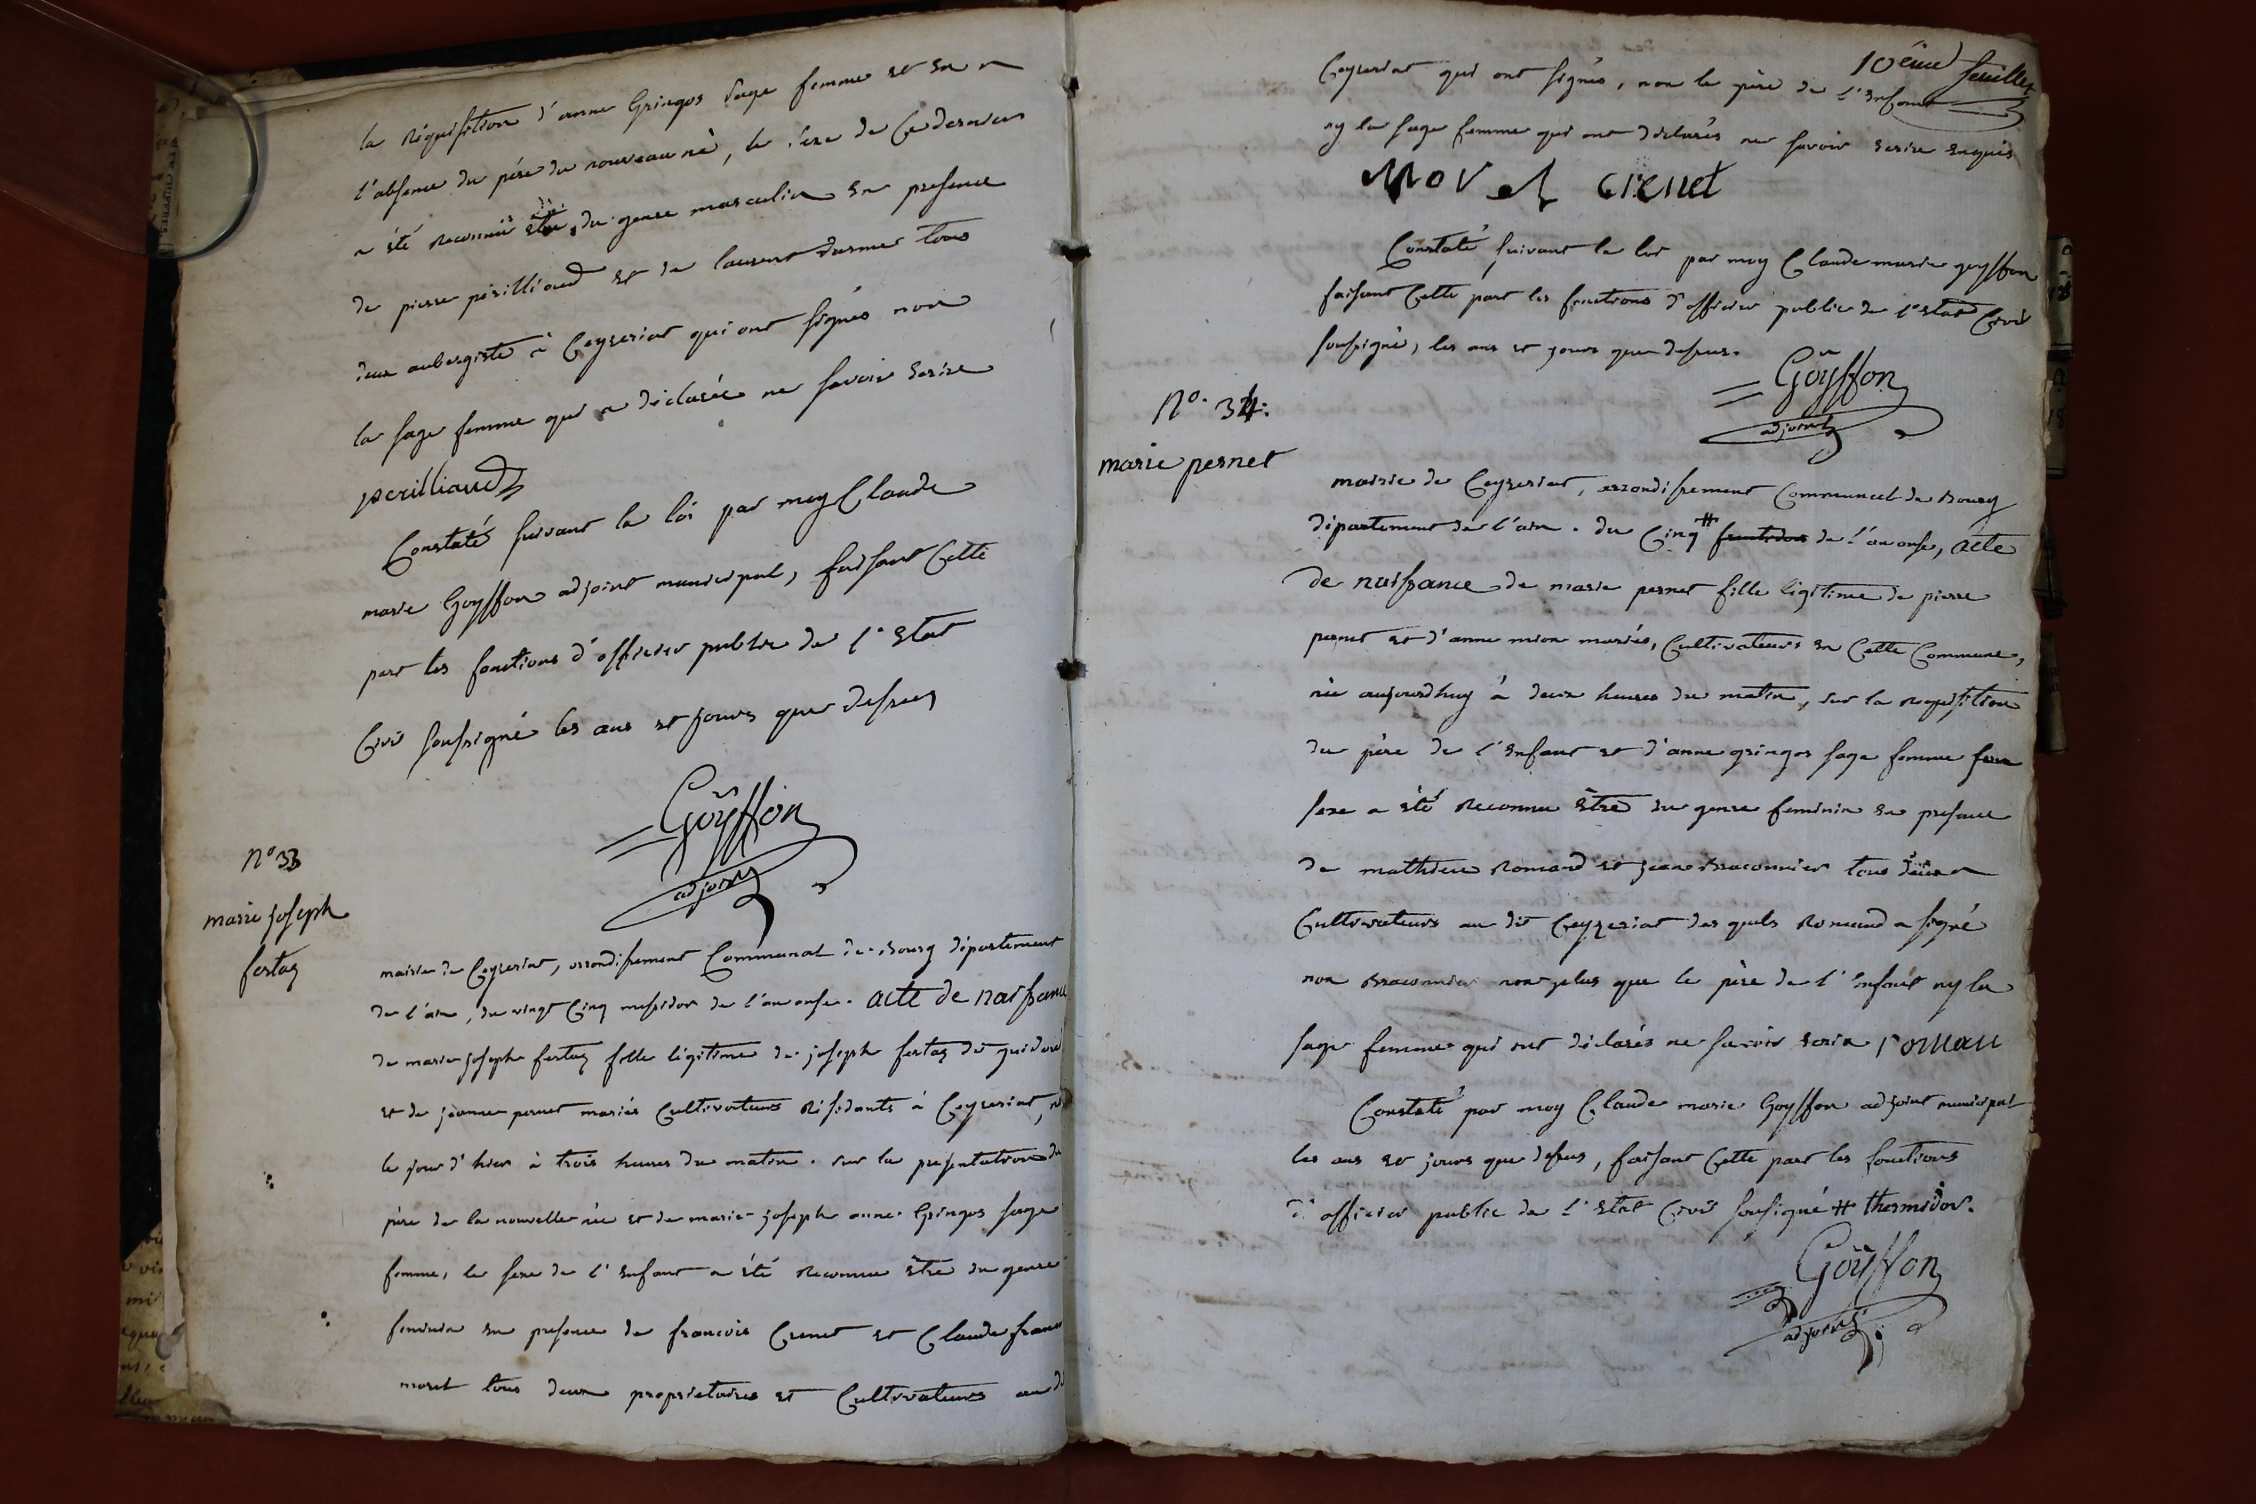 la Réquisition d'anne Gringos sage femme et en
l'absence du père du nouveau né, le sexe de Ce dernier
a été Reconnu être du genre masculin en presence
de pierre périlliaud et de laurent tous
deux aubergiste à Ceyzeriat qui ont signés non
la sage femme qui a déclarée ne savoir Ecrire
perilliaud
Constaté suivant la loi par moy Claude
marie Goyffon adjoint municipal, faisant Cette
part les fonctions d'officier public de l'Etat
Civil soussigné les ans et jours que dessus
Goÿffon
adjoint
N° 33
marie joseph
fertaz
mairie de Ceyzeriat, arrondissement Communal de Bourg département
de l'ain, du vingt Cinq messidor de l'an onse. acte de naissance
de marie joseph fertaz fille légitime de joseph fertaz dit
et de jeanne pernet mariés Cultivateurs Résidants à Ceyzeriat,
le jour d'hier à trois heures du matin. sur la présentation du
père de la nouvelle née et de marie joseph anne Gringos sage
femme, le sexe de l'Enfant a été Reconnu être du genre
feminin en presence de francois Crenet et Claude
moret tous deux proprietaires et Cultivateurs au
10ème feuillet
Ceyzeriat qui ont signés, non le père de l'Enfant
ny la sage femme qui ont déclarés ne savoir Ecrire Enquis
MOVEL crenet
Constaté suivant la loi par moy Claude marie goyffon
faisant Cette part les fonctions d'officier public de l'Etat Civil
soussigné, les ans et jours que dessus.
Goÿffon
adjoint
N°. 34.
marie pernet
mairie de Ceyzeriat, arrondissement Communal de Bourg
département de l'ain. du Cinq # de l'an onse, acte
de naissance de marie pernet fille légitime de pierre
pernet et d'anne mion mariés, Cultivateurs en Cette Commune,
née aujourdhuy à deux heures du matin, sur la Requisition
du père de l'Enfant et d'anne gringos sage femme
sexe a été Reconnu Etre du genre feminin en presence
de mathieu Romand et jean Braconnier tous deux
Cultivateurs au dit Ceyzeriat des quels Romand a signé
non Braconnier non plus que le père de l'Enfant ny la
sage femme qui ont déclarés ne savoir Ecrire roman
Constaté par moy Claude marie Goyffon adjoint municipal
les ans et jours que dessus, faisant Cette part les fonctions
d'officier public de l'Etat Civil soussigné # thermidor.
Goÿffon
adjoint